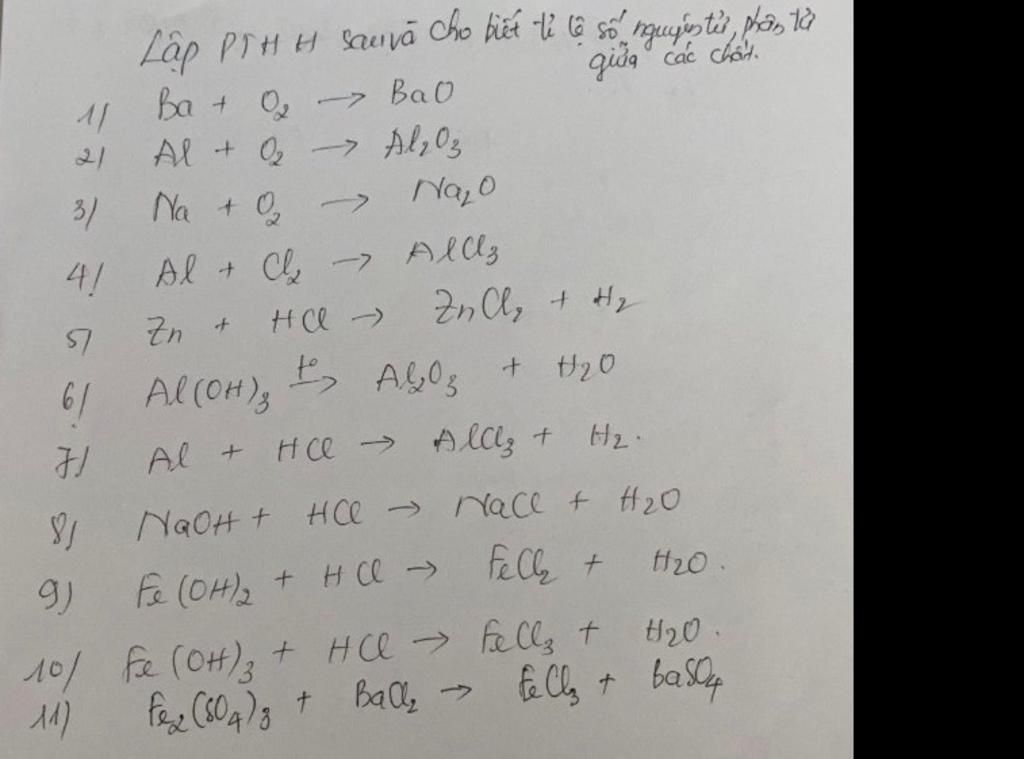 Lập PTHH sau và cho biết tỉ lệ số nguyên tử, phân tử
giữa các chất.
1) Ba + O2 → BaO
2) Al + O2 → Al2O3
3) Na + O2 → Na2O
4) Al + Cl2 → AlCl3
5) Zn + HCl → ZnCl2 + H2
6) Al(OH)3 t° → Al2O3 + H2O
7) Al + HCl → AlCl3 + H2.
8) NaOH + HCl → NaCl + H2O
9) Fe(OH)2 + HCl → FeCl2 + H2O.
10) Fe(OH)3 + HCl → FeCl3 + H2O.
11) Fe2(SO4)3 + BaCl2 → FeCl3 + BaSO4